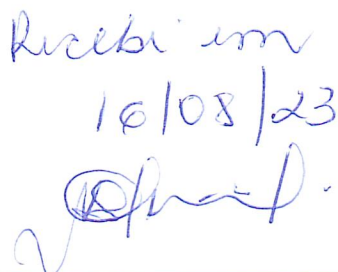 Recebi em
16/08/23